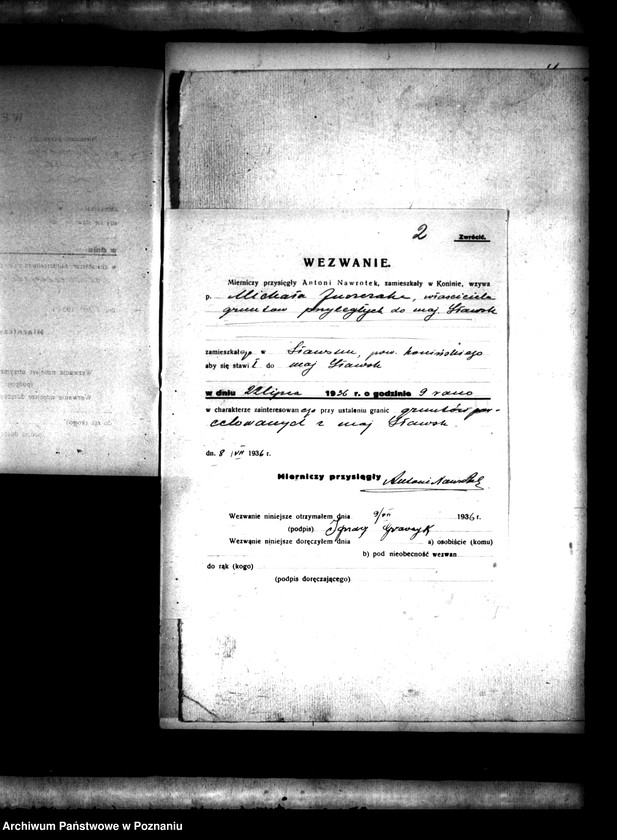 2
Zwrócić.
WEZWANIE.
Mierniczy przysięgły Antoni Nawrotek, zamieszkały w Koninie, wzywa
p. Michała, właściciela
gruntów przyległych do maj. Sławsk
zamieszkałego w Sławsku, pow. konińskiego
aby się stawił do maj Sławsk
w dniu 22 lipca 1936 r. o godzinie 9 rano
w charakterze zainteresowanego przy ustaleniu granic gruntów par-
celowanych z maj Sławsk.
dn. 8/VII 1936 r.
Mierniczy przysięgły Antoni Nawrotek
Wezwanie niniejsze otrzymałem dnia 9/VII 1936 r.
(podpis) Ignacy
Wezwanie niniejsze doręczyłem dnia a) osobiście (komu)
b) pod nieobecność wezwan
do rąk (kogo)
(podpis doręczającego)
Archiwum Państwowe w Poznaniu